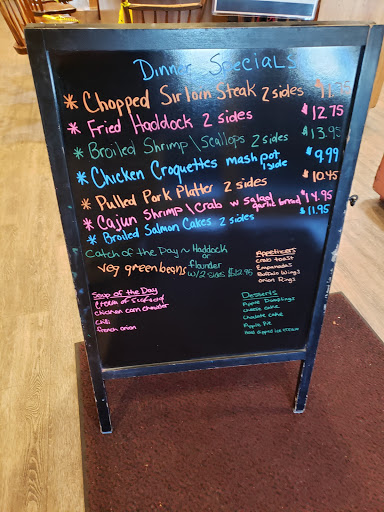 Dinner Specials
* Chopped Sirloin Steak 2 sides
* Fried Haddock 2 sides $12.75
* Broiled Shrimp \ scallops 2 sides $13.95
* Chicken Croquettes mash pot 1 side $9.99
* Pulled Pork Platter 2 sides $10.45
* Cajun Shrimp \ crab w salad garlic bread $14.95
* Broiled Salmon Cakes 2 sides $11.95
Catch of the Day ~ Haddock
or
flounder
w/2 sides $12.95
Veg green beans
Soup of the Day
Cream of
chicken corn chowder
chili
french onion
Appetizers
crab toast
Empanadas
Buffalo Wings
onion Rings
Desserts
Apple Dumplings
cheese cake
Chocolate cake
Apple Pie
Hand dipped ice cream